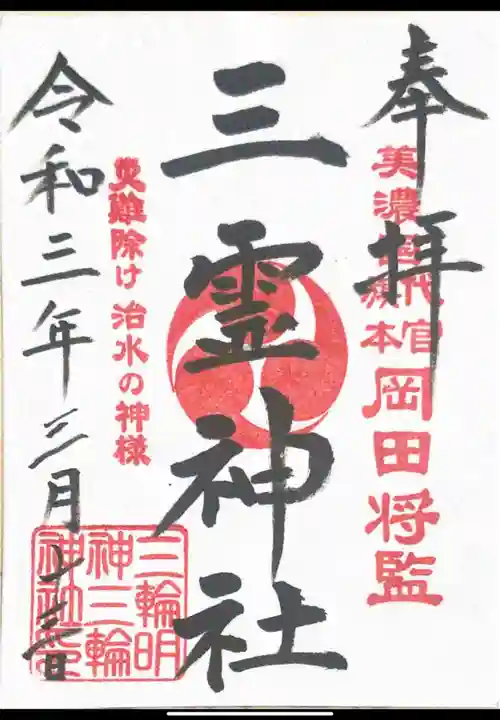 奉拝
美濃国代官
旗本
岡田将監
三霊神社
災難除け 治水の神様
令和三年三月十三日
三輪明
神三輪
神社